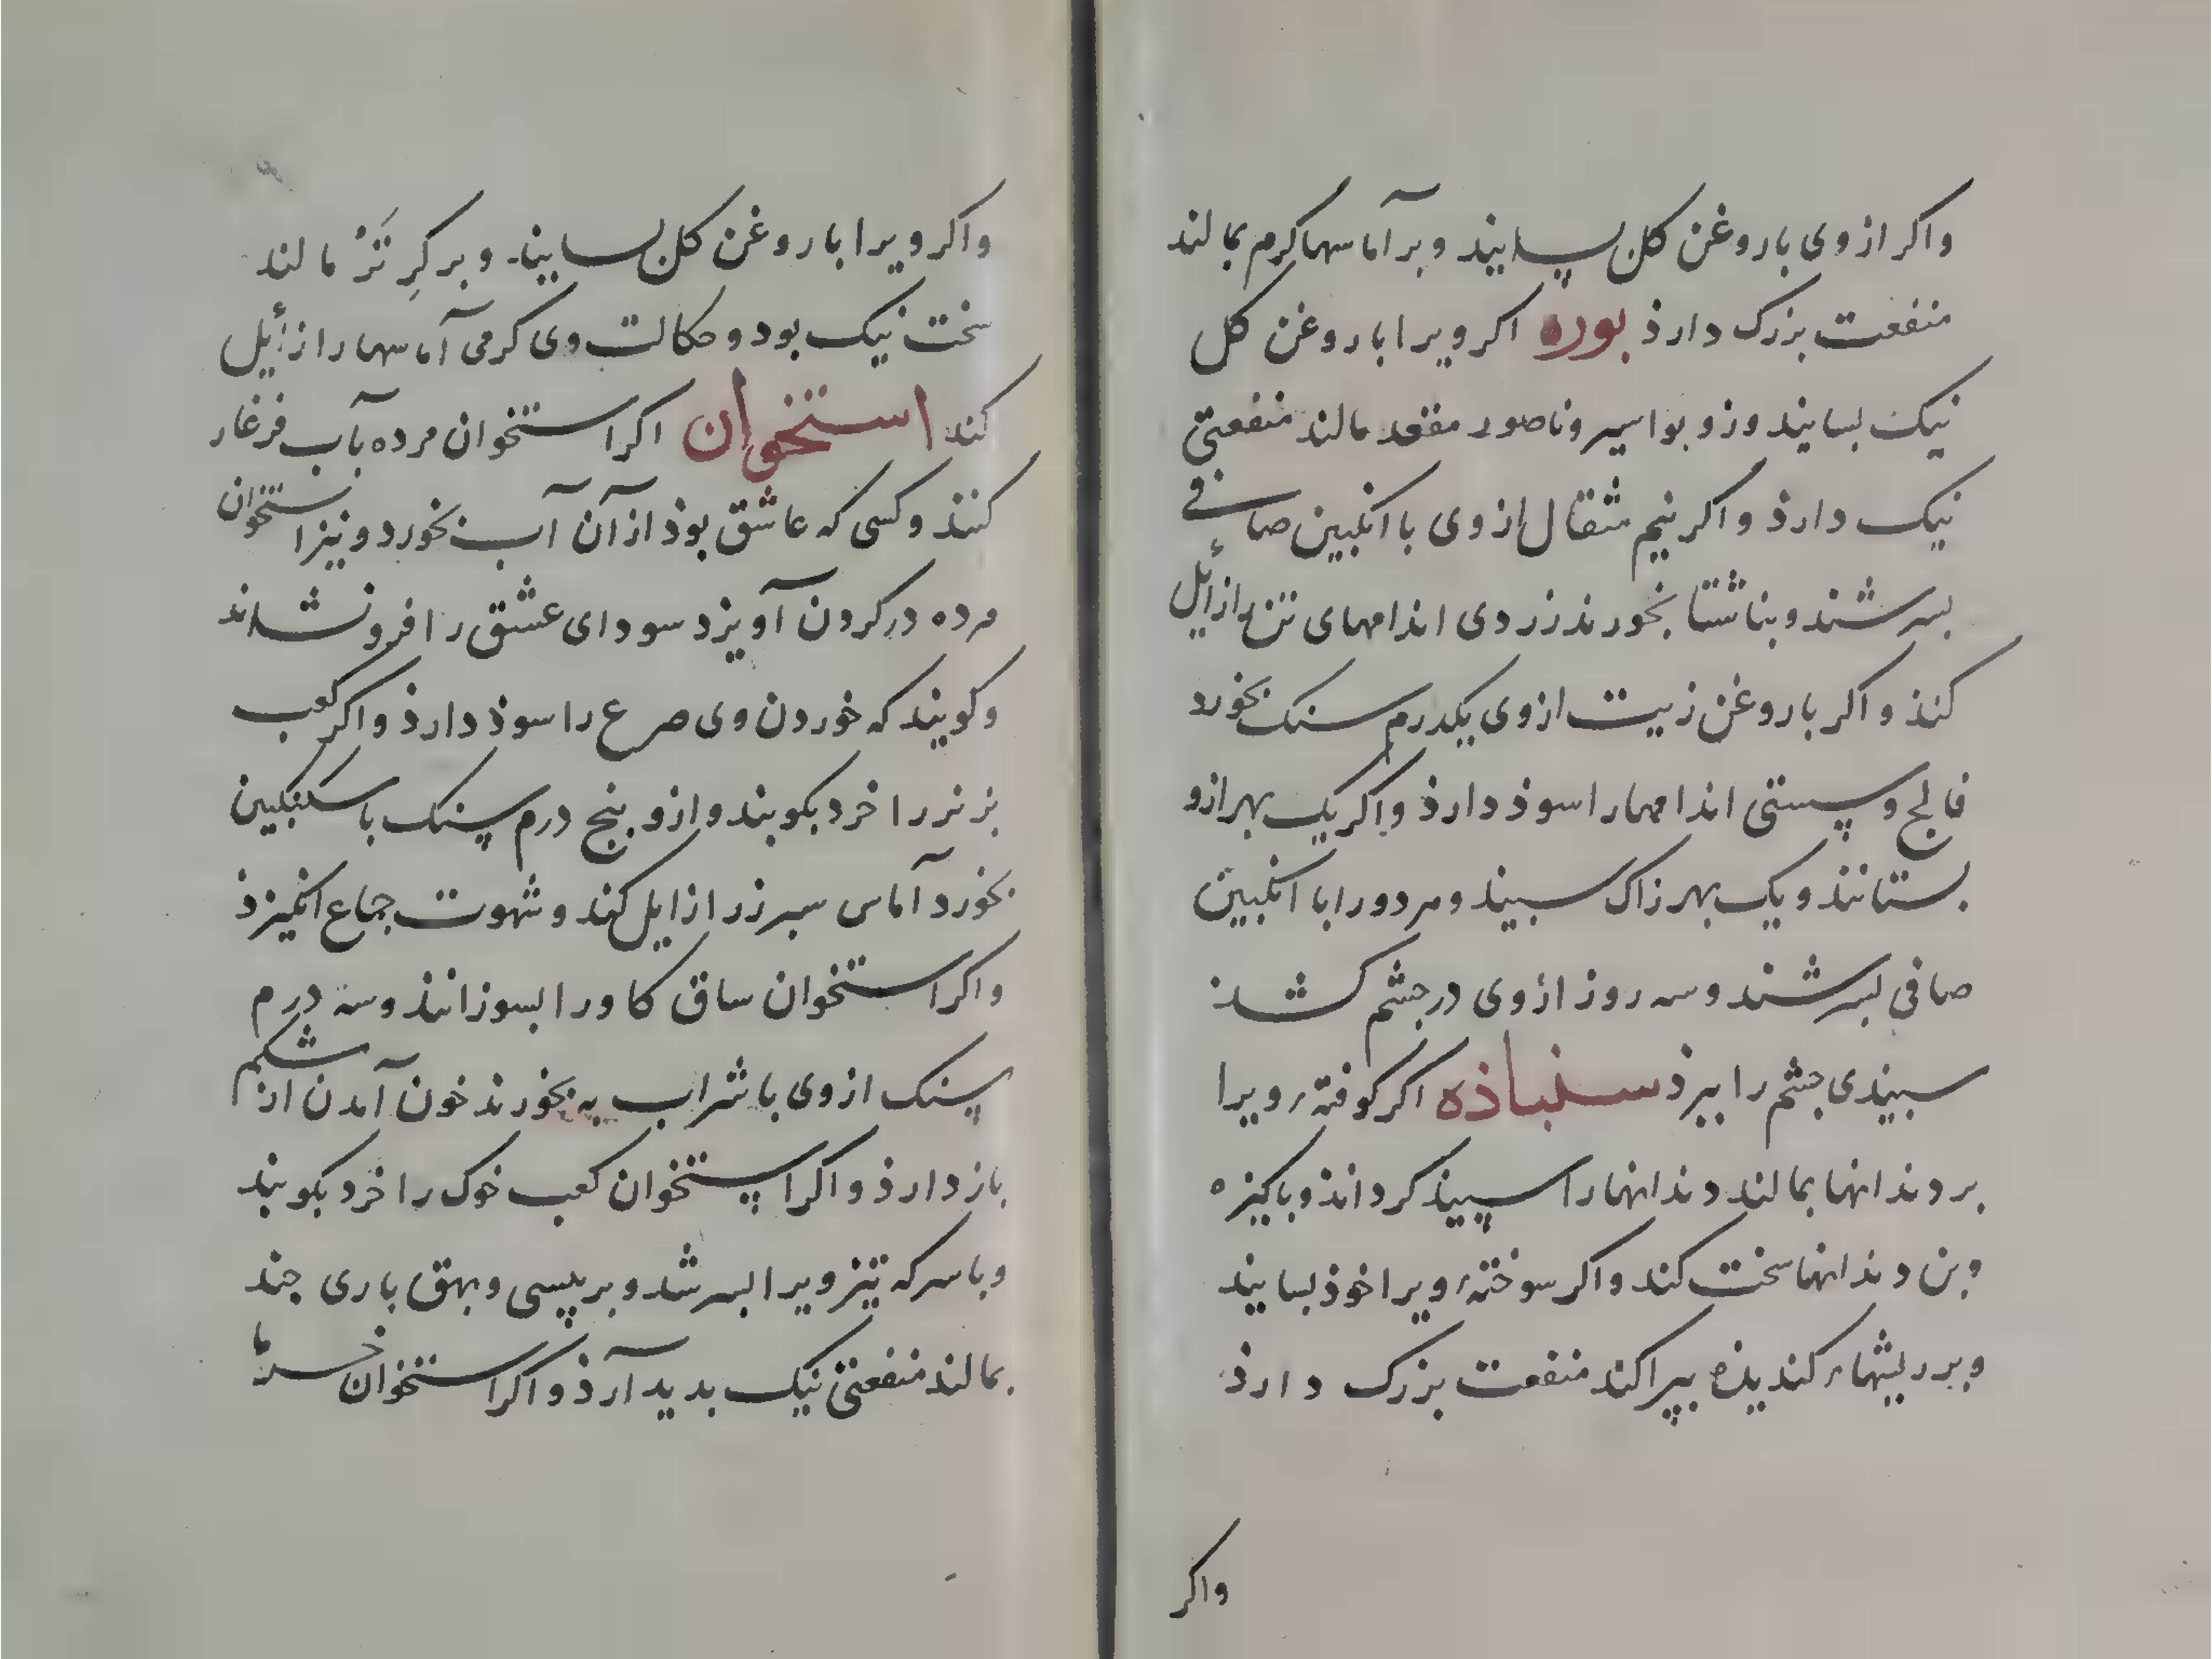 واکر ازوی باروغن کل بسایند وبر آماسها کرم بمالند
منفعت بزرک دارذ بوره اکر ویرا باروغن کل
نیک بسایند وزو بواسیر وناصور مقعد مالند منفعتی
نیک دارذ واکر نیم مثقال ازوی با انکبین صافی
بسرشند وبناشتا بخورند زردی اندامهای تن زایل
کنذ واکر باروغن زیت ازوی یکدرم سنک بخورد
فالج وسستی اندامهارا سوذ دارذ واکر یک بهر ازو
بستانند ویک بهر زاک سبیند ومردورا با انکبین
صافی بسرشند وسه روز ازوی درجشم کشذ
سبیذی جشم را ببرذ سنباذه اکر کوفتهٔ ویرا
بر دندانها بمالند دندانهارا سپیذ کرداند وباکیزه
وبن دندانها سخت کند واکر سوختهٔ ویرا خوذ بسایند
وبر ریشهاء کندیذه بپراکند منفعت بزرک دارذ
واکر
واکر ویرا باروغن کل بسایند وبر کرِ تَرْ مالند
سخت نیک بود وحکالت وی کرمی آماسهارا زایل
کند استخوان اکر استخوان مرده بآب فرغار
کنند وکسی که عاشق بوذ از آن آب بخورد ونیز استخوان
مرده در کردن آویزد سودای عشق را فرونشاند
وکویند که خوردن وی صرع را سوذ دارذ واکر کعب
بز نر را خرد بکوبند وازو بنج درم سنک با سکنکبین
بخورد آماس سبرز را زایل کند وشهوت جماع انکیزذ
واکر استخوان ساق کاورا بسوزانند وسه درم
سنک ازوی با شراب به بخورند خون آمدن از شکم
باز دارذ واکر استخوان کعب خوک را خرد بکوبند
وبا سرکه تیز ویرا بسرشد وبر پیسی وبهق باری جند
بمالند منفعتی نیک بدید آرذ واکر استخوان خرما